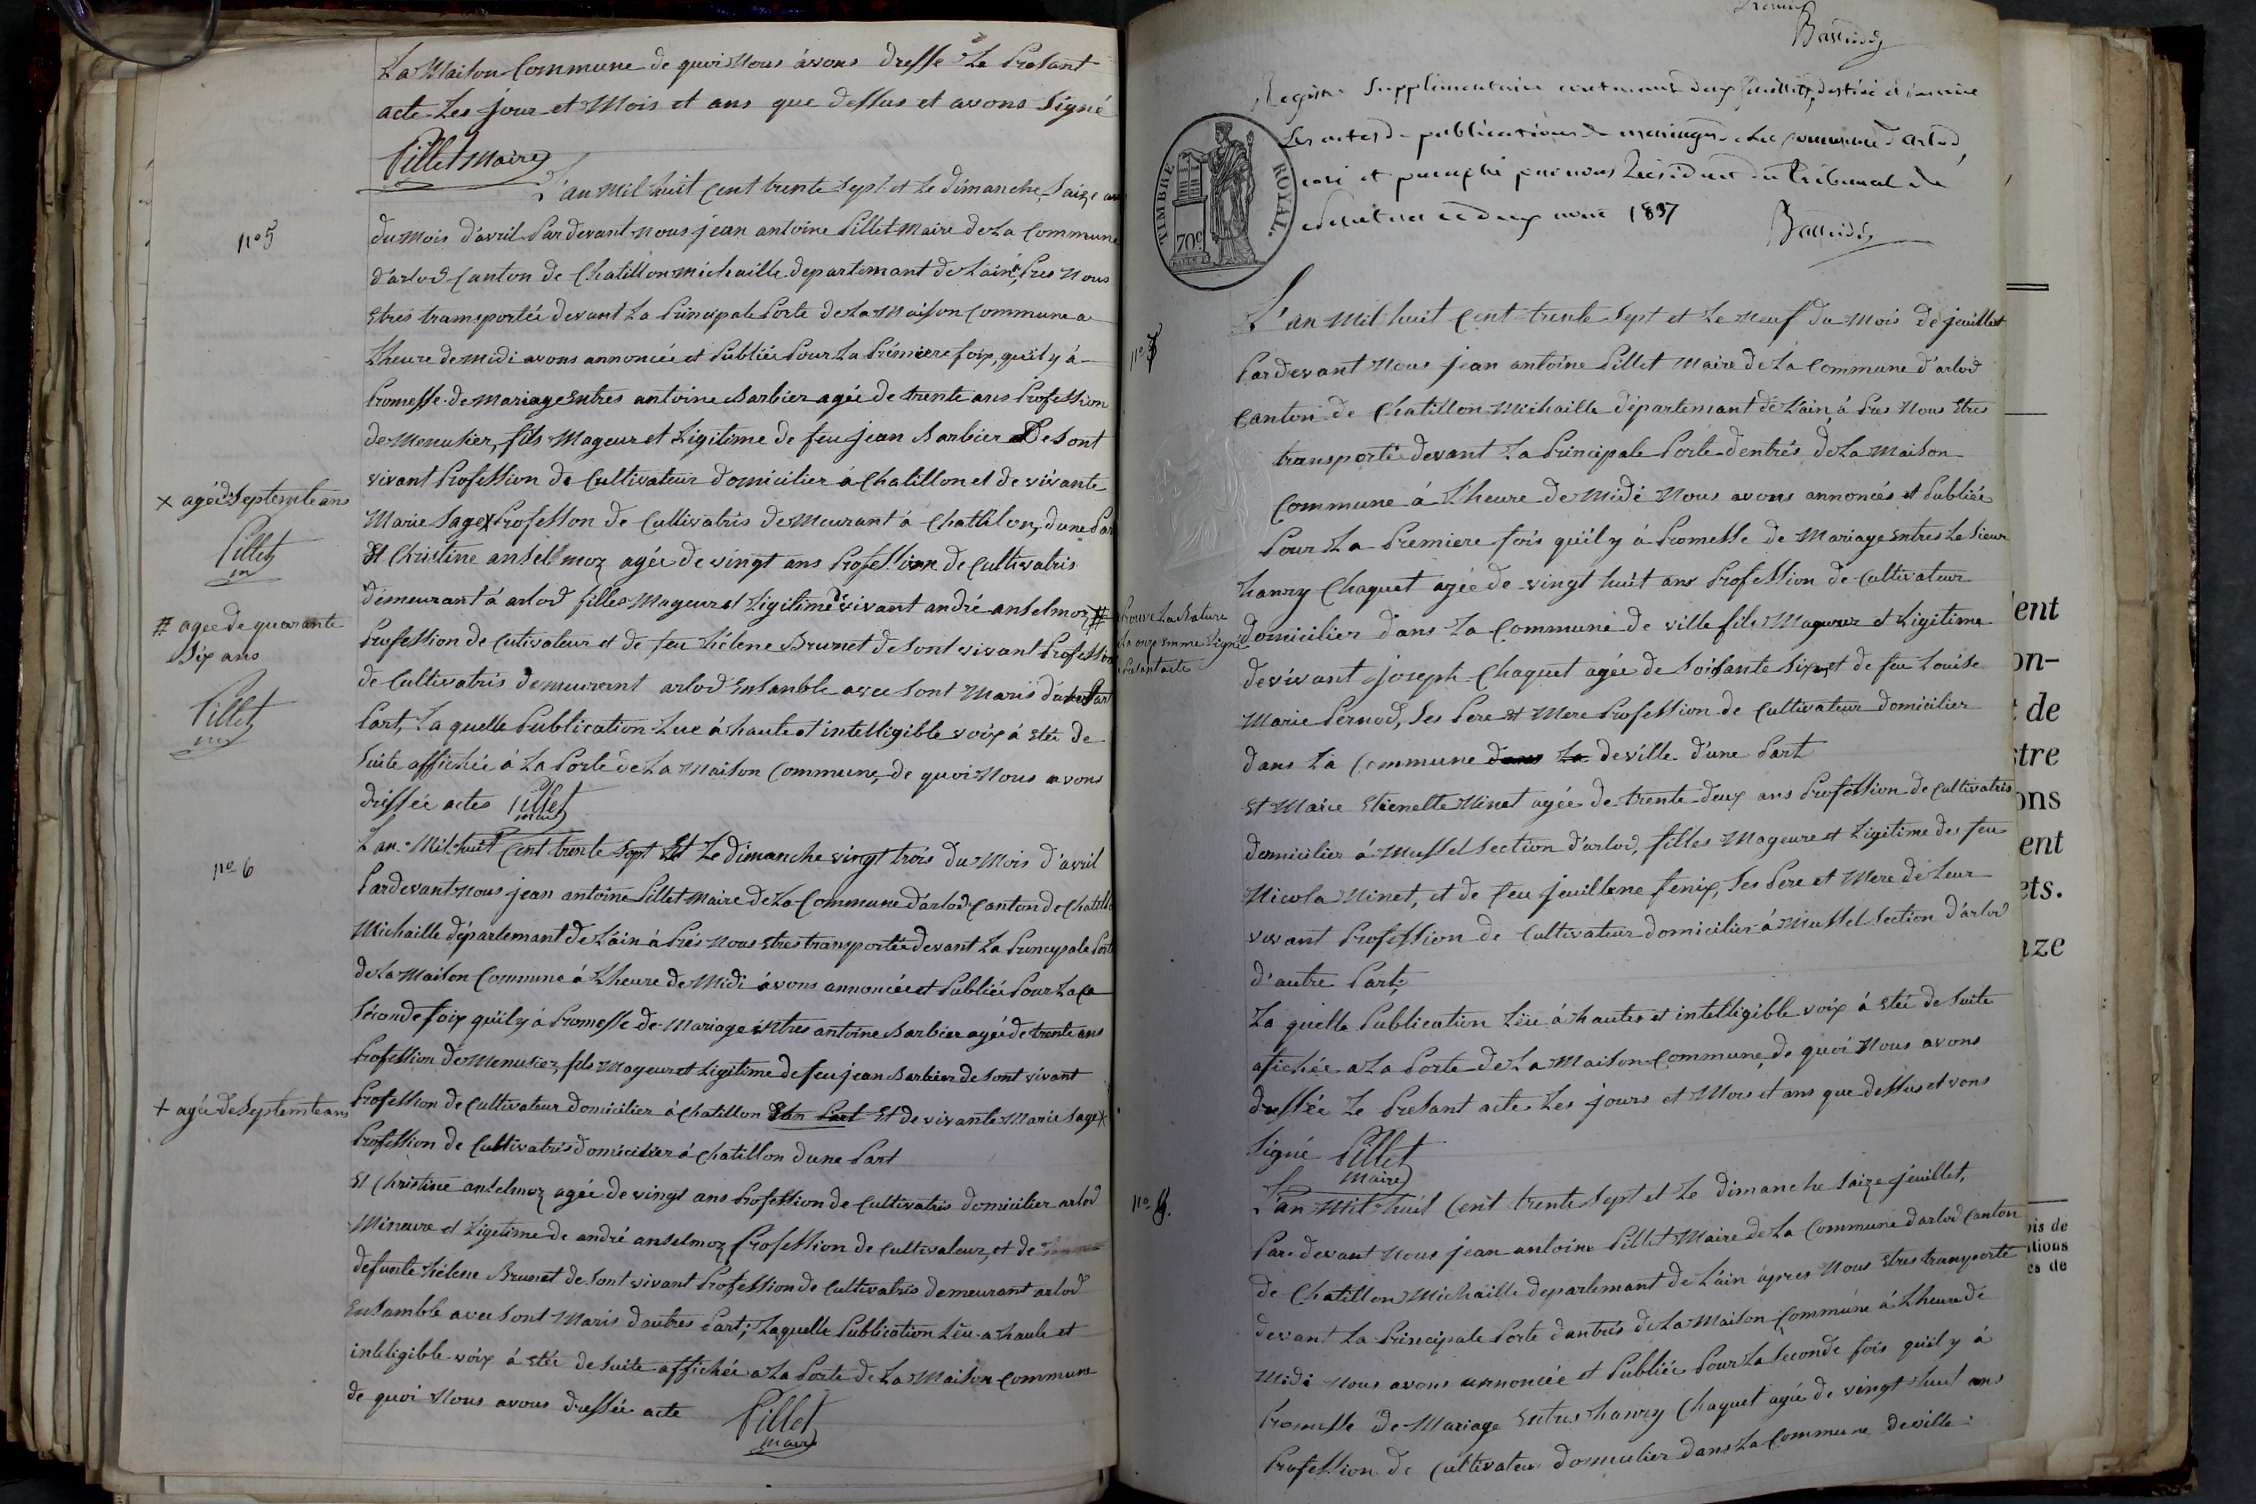 La Maison Commune de quoi Nous avons dressé Le Presant
acte Les jour et Mois et ans que dessus et avons Signé
Pillet Maire
n° 5
L'an Mil huit Cent trente Sept et Le dimanche Saize
du Mois d'avril Pardevant nous jean antoine Pillet Maire de La Commune
d'arlod Canton de Chatillon michaille departemant de L'ain, Pres Nous
Etres transportée devant La Principale Porte de La Maison Commune a
Lheure de midi avons annoncée et Publiée Pour La Prémiere foix, quil y à
Promesse de Mariage Entres antoine Barbier agée de trente ans Profession
de Menusier, fils Mageur et Ligitime de feu jean Barbier De Sont
vivant Profession de Cultivateur domicilier á Chatillon et de vivante
× agée de Septente ans
Pillet
m
Marie Sage × Professon de Cultivatris demeurant á Chattilon, dune Par
Et Christine anselmoz agée de vingt ans Profession de Cultivatris
demeurant á arlod filles Mageur et Ligitime de vivant andré anselmoz #
# agée de quarante
Six ans
Pillet
Profession de Cutivateur et de feu hélene Brunet de Sont vivant Profession
de Cultivatris demeurant arlod Ensanble avec Sont Maris
Part, La quelle Publication Lue á haute et intelligible voix á etée de
Suite affichée á La Porte de La Maison Commune, de quoi Nous avons
dréssée actes Pillet
maire
n° 6
L'an Mil huit Cent trente Sept Et Le dimanche vingt trois du Mois d'avril
Pardevant nous jean antoine Pillet Maire de La Commune d'arlod Canton de Chatillo
Michaille départemant de L'ain á Prés Nous Etres transportée devant La Principale Port
de La Maison Commune á Lheure de Midi ávons annoncée et Publiée Pour La
Séconde foix quil y á Promesse de Mariage Entres antoine Barbier agée de trente ans
Profession de Menusier, fils Mageur et Ligitime de feu jean Barbier de Sont vivant
× agée de Septente ans
Profession de Cultivateur domicilier á Chatillon Et de vivante Marie Sage ×
Profession de Cultivatris domicilier á Chatillon dune Part
Et Christine anselmoz agée de vingt ans Profession de Cultivatris domicilier arlod
Mineure et Ligitime de andré anselmoz Profession de Cultivateur, et de
defunte hélene Brunet de Sont vivant Profession de Cultivatris demeurant arlod
Ensamble avec Sont Maris dautres Part; Laquelle Publication Lèu a haute et
inteligible voix á etée de Suite affichée a La Porte de La Maison Commune
de quoi Nous avons dressée acte
Pillet
maire
Registre Supplémentaire contenant deux feuillets, destiné à inscrire
Les actes de publications de mariages de La Commune d'arlod,
coté et paraphé par nous Président du Tribunal de
ce deux avril 1837
TIMBRE ROYAL.
70 c
n°
L'an Mil huit Cent trente Sept et Le Neuf du Mois de juillet
Pardevant Nous jean antoine Pillet Maire de La Commune d'arlod
Canton de Chatillon Michaille département de L'ain, á Pres Nous Etres
transportée devant La Principale Porte d'entrés de La Maison
Commune á Lheure de Midi Nous avons annoncés et Publiée
Pour La Premiere fois quil y á Promesse de Mariage Entres Le Sieur
hanry Chaquet agée de vingt huit ans Profession de Cultivateur
domicilier dans La Commune de ville fils Mageur et Ligitime
de vivant joseph Chaquet agée de Soisante Six et de feu Louise
Marie Pernod, Ses Pere et Mere Profession de Cultivateur domicilier
dans La Commune dans La de ville d'une Part
Et Marie Etienette Ninet agée de trente deux ans Profession de Cultivatris
domicilier á Mussel Section d'arlod, filles Mageure et Ligitime des feu
Nicola Ninet, et de feu juillene fenix, Ses Pere et Mere de Leur
vivant Profession de Cultivateur domicilier á Mussel Section d'arlod
d'autre Part;
La quelle Publication Lèu á hautes et intelligible voix á etée de Suite
afichée a La Porte de La Maison Commune, de quoi Nous avons
dressée Le Presant actes Les jours et Mois et ans que dessus et vons
Signé Pillet
Maire
n°
L'an Mil huit Cent trente Sept et Le dimanche Saize juillet,
Par devant Nous jean antoine Pillet Maire de La Commune d'arlod Canton
de Chatillon Michaille departemant de L'ain ápres Nous Etres transporté
devant La Principale Porte dantrés de La Maison Commune á Lheure de
Midi Nous avons annoncée et Publiée Pour La Seconde fois quil y á
Promesse de Mariage Entres hanry Chaquet agée de vingt huit ans
Profession de Cultivateur domicilier dans La Commune de ville
ent
on-
de
stre
ons
ent
ets.
aze
ois de
tions
es de